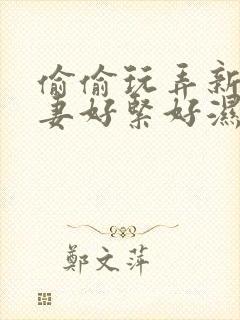 偷偷玩弄新
妻好緊好濕
鄭文萍